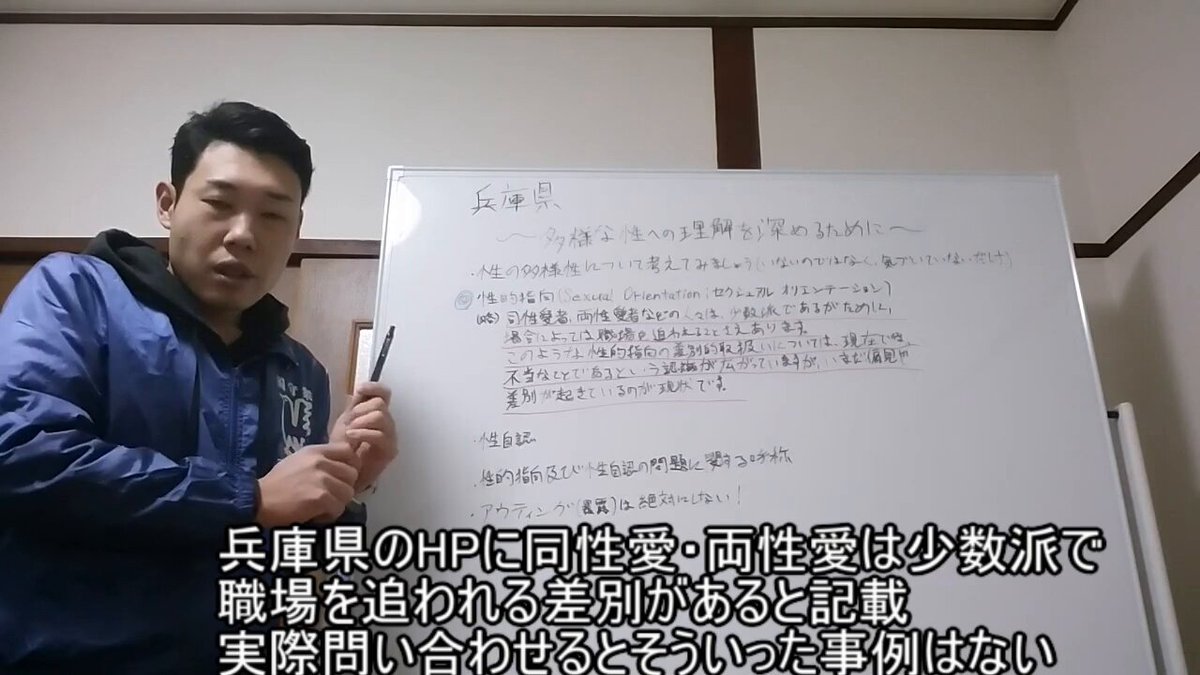 兵庫県
～多様な性への理解を深めるために～
・性の多様性について考えてみましょう(いないのではなく、気づいていないだけ)
性的指向(Sexual Orientation:セクシュアル オリエンテーション)
(略) 同性愛者、両性愛者などの人々は、少数派であるがために、
場合によっては職場を追われることさえあります。
このような性的指向の差別的取扱いについては、現在では、
不当なことであるという認識が広がっていますが、いまだ偏見や
差別が起きているのが現状です。
・性自認
・性的指向及び性自認の問題に関する呼称
・アウティング(暴露)は絶対にしない!
兵庫県のHPに同性愛・両性愛は少数派で
職場を追われる差別があると記載
実際問い合わせるとそういった事例はない